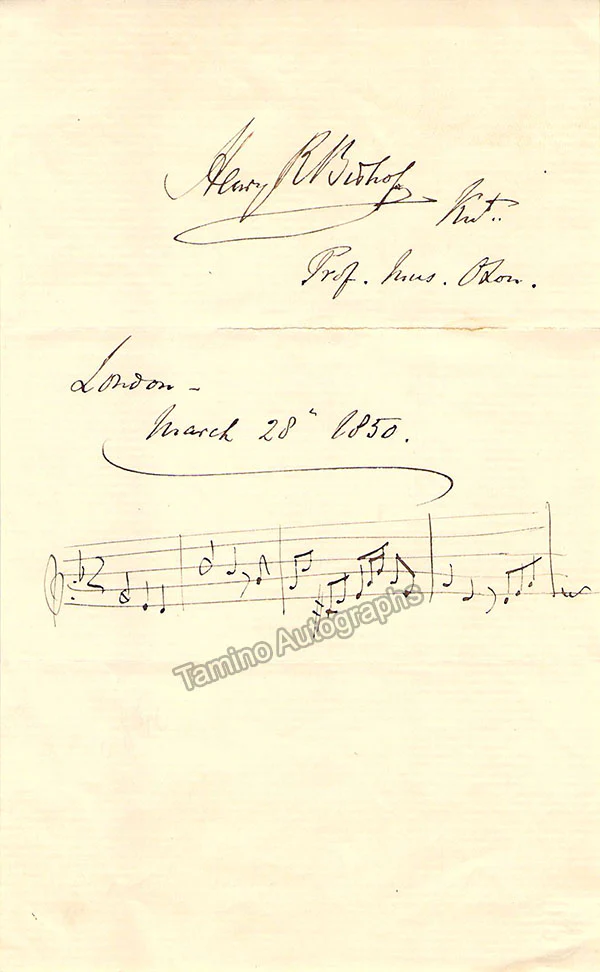 Henry R Bishop Knt..
Prof. Mus. Oxon.
London -
March 28" 1850.
Tamino Autographs